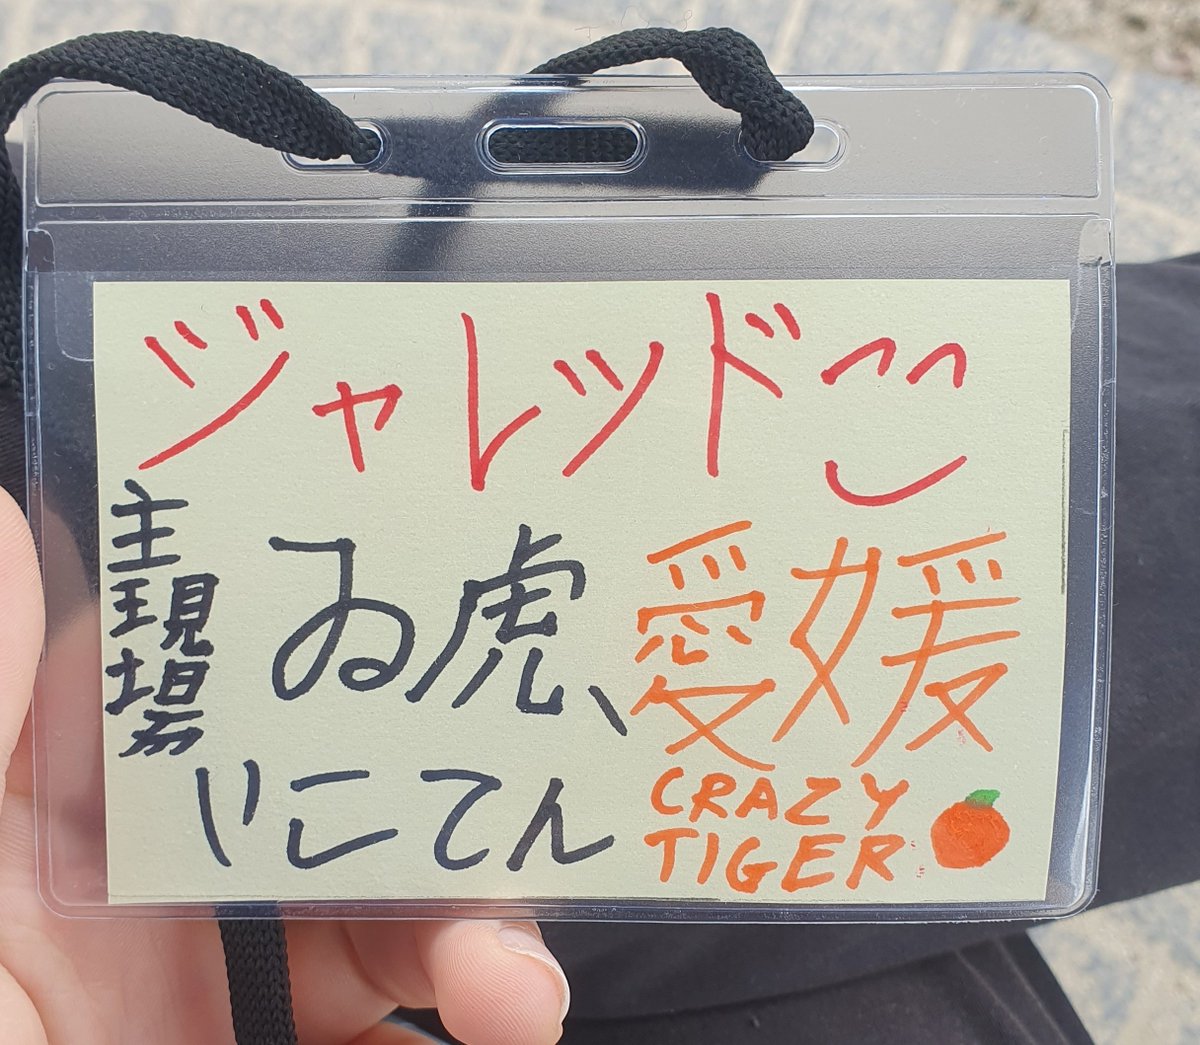 ジャレッド
主現場
ゐ虎、
いこてん
愛媛
CRAZY
TIGER